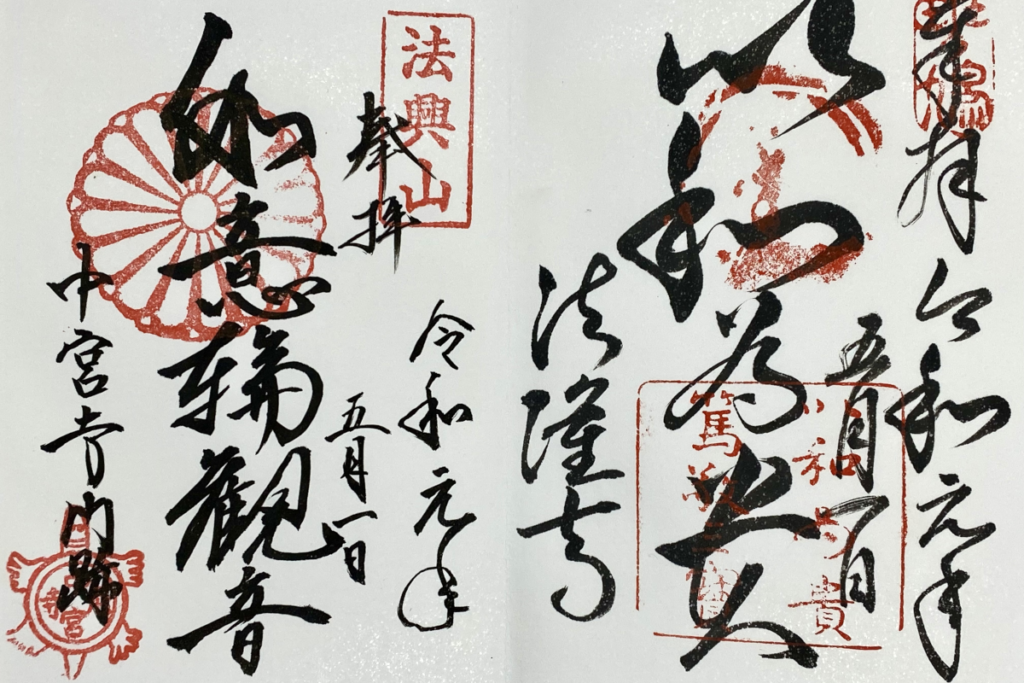 奉拝 令和元年
五月一日
以和為貴
以和為貴
篤敬三寶
法隆寺
法興山
奉拝
令和元年
五月一日
如意輪観音
中宮寺門跡